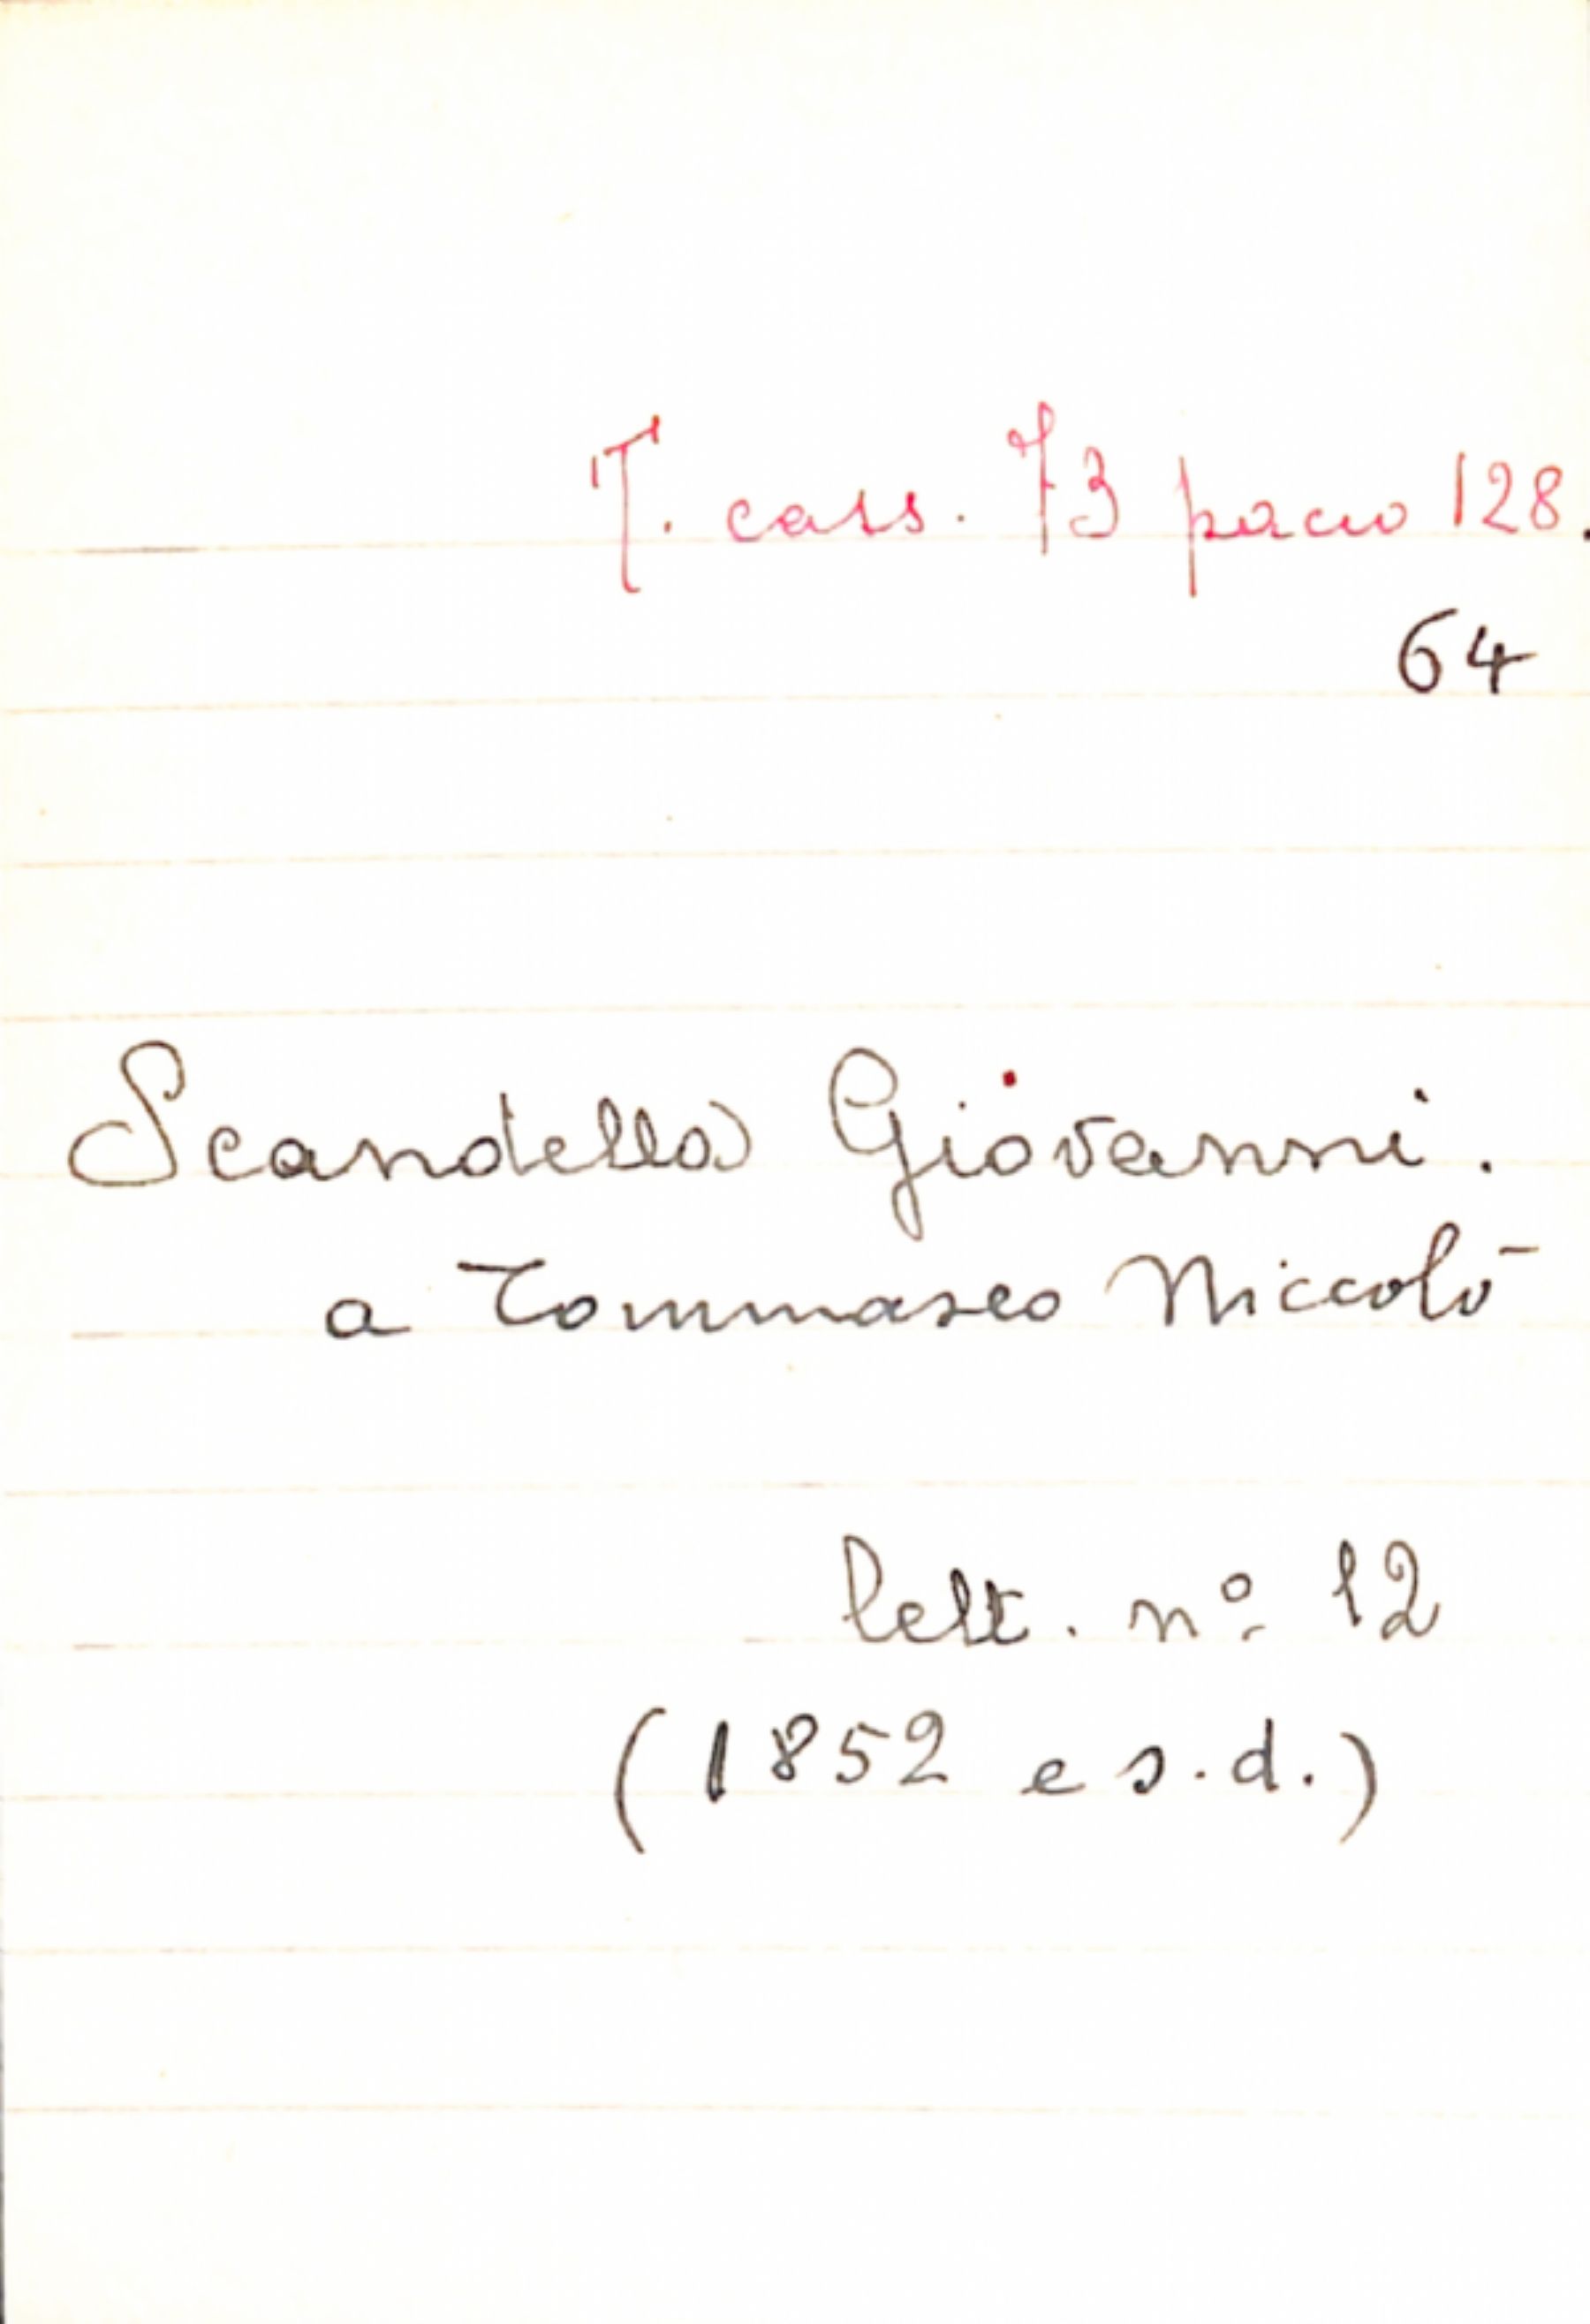 T. cass. 73 pacco 128.
64
Scandella Giovanni.
a Tommaseo Niccolò
lett. nº 12
(1852 e s.d.)